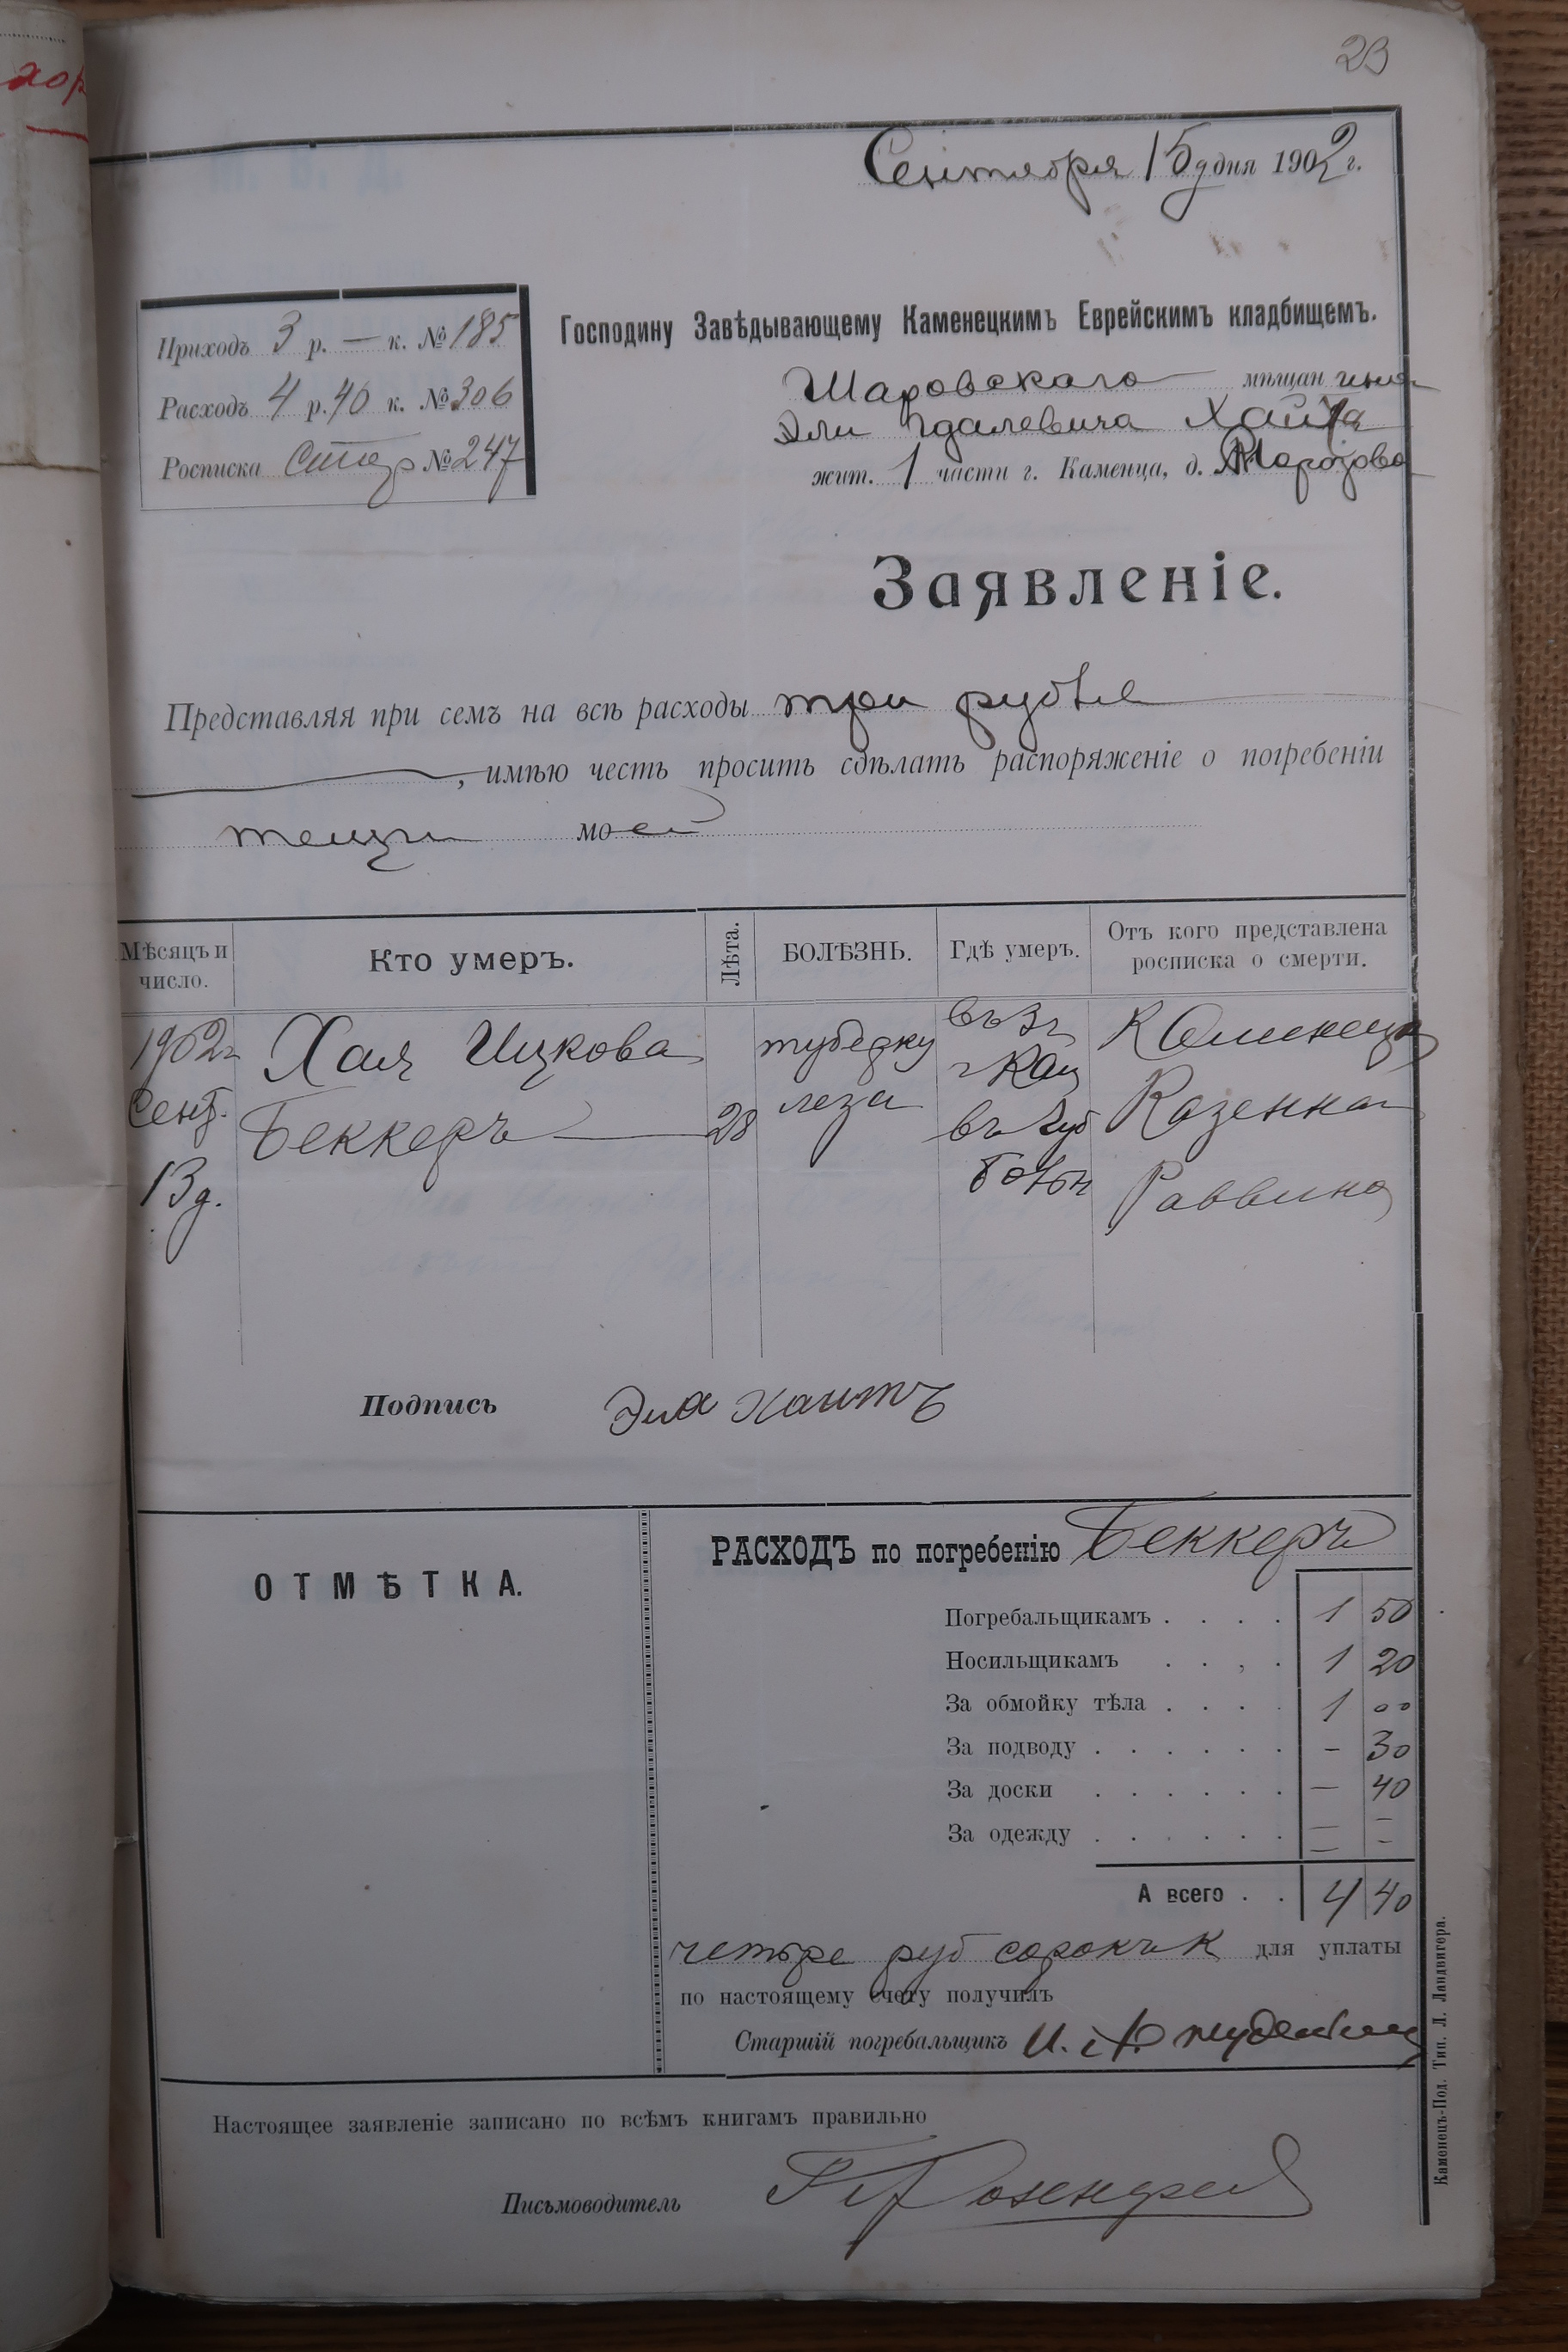 23
Сентября 15 д дня 1902 г.
Приходъ 3 р. — к. № 185
Расходъ 4 р. 40 к. № 306
Росписка № 247
Господину Завѣдывающему Каменецкимъ Еврейскимъ кладбищемъ.
Шаровскаго мѣщанина
Эли Гдалевича Хаита
жит. 1 части г. Каменца, д. Морозова
Заявленіе.
Представляя при семъ на всѣ расходы три рубля
, имѣю честь просить сдѣлать распоряженіе о погребеніи
тещи моей
Мѣсяцъ и число.
Кто умеръ.
Лѣта.
БОЛѢЗНЬ.
Гдѣ умеръ.
Отъ кого представлена росписка о смерти.
1902 г
Сент.
13 д.
Хая Ицкова
Беккеръ
28
туберку
леза
въ
г Кам
въ губ
Каменецк
Казенна
Раввина
Подпись Эля Хаитъ
ОТМѢТКА.
РАСХОДЪ по погребенію Беккеръ
Погребальщикамъ . . . . 1 50
Носильщикамъ . . , . 1 20
За обмойку тѣла . . . . 1 00
За подводу . . . . . . – 30
За доски . . . . . . — 40
За одежду . . . . . . — –
А всего . . 4 40
четыре руб сорокъ к для уплаты
по настоящему счету получилъ
Старшій погребальщикъ И.
Настоящее заявленіе записано по всѣмъ книгамъ правильно
Письмоводитель Розенфел
Каменецъ-Под. Тип. Л. Ландвигера.
хор